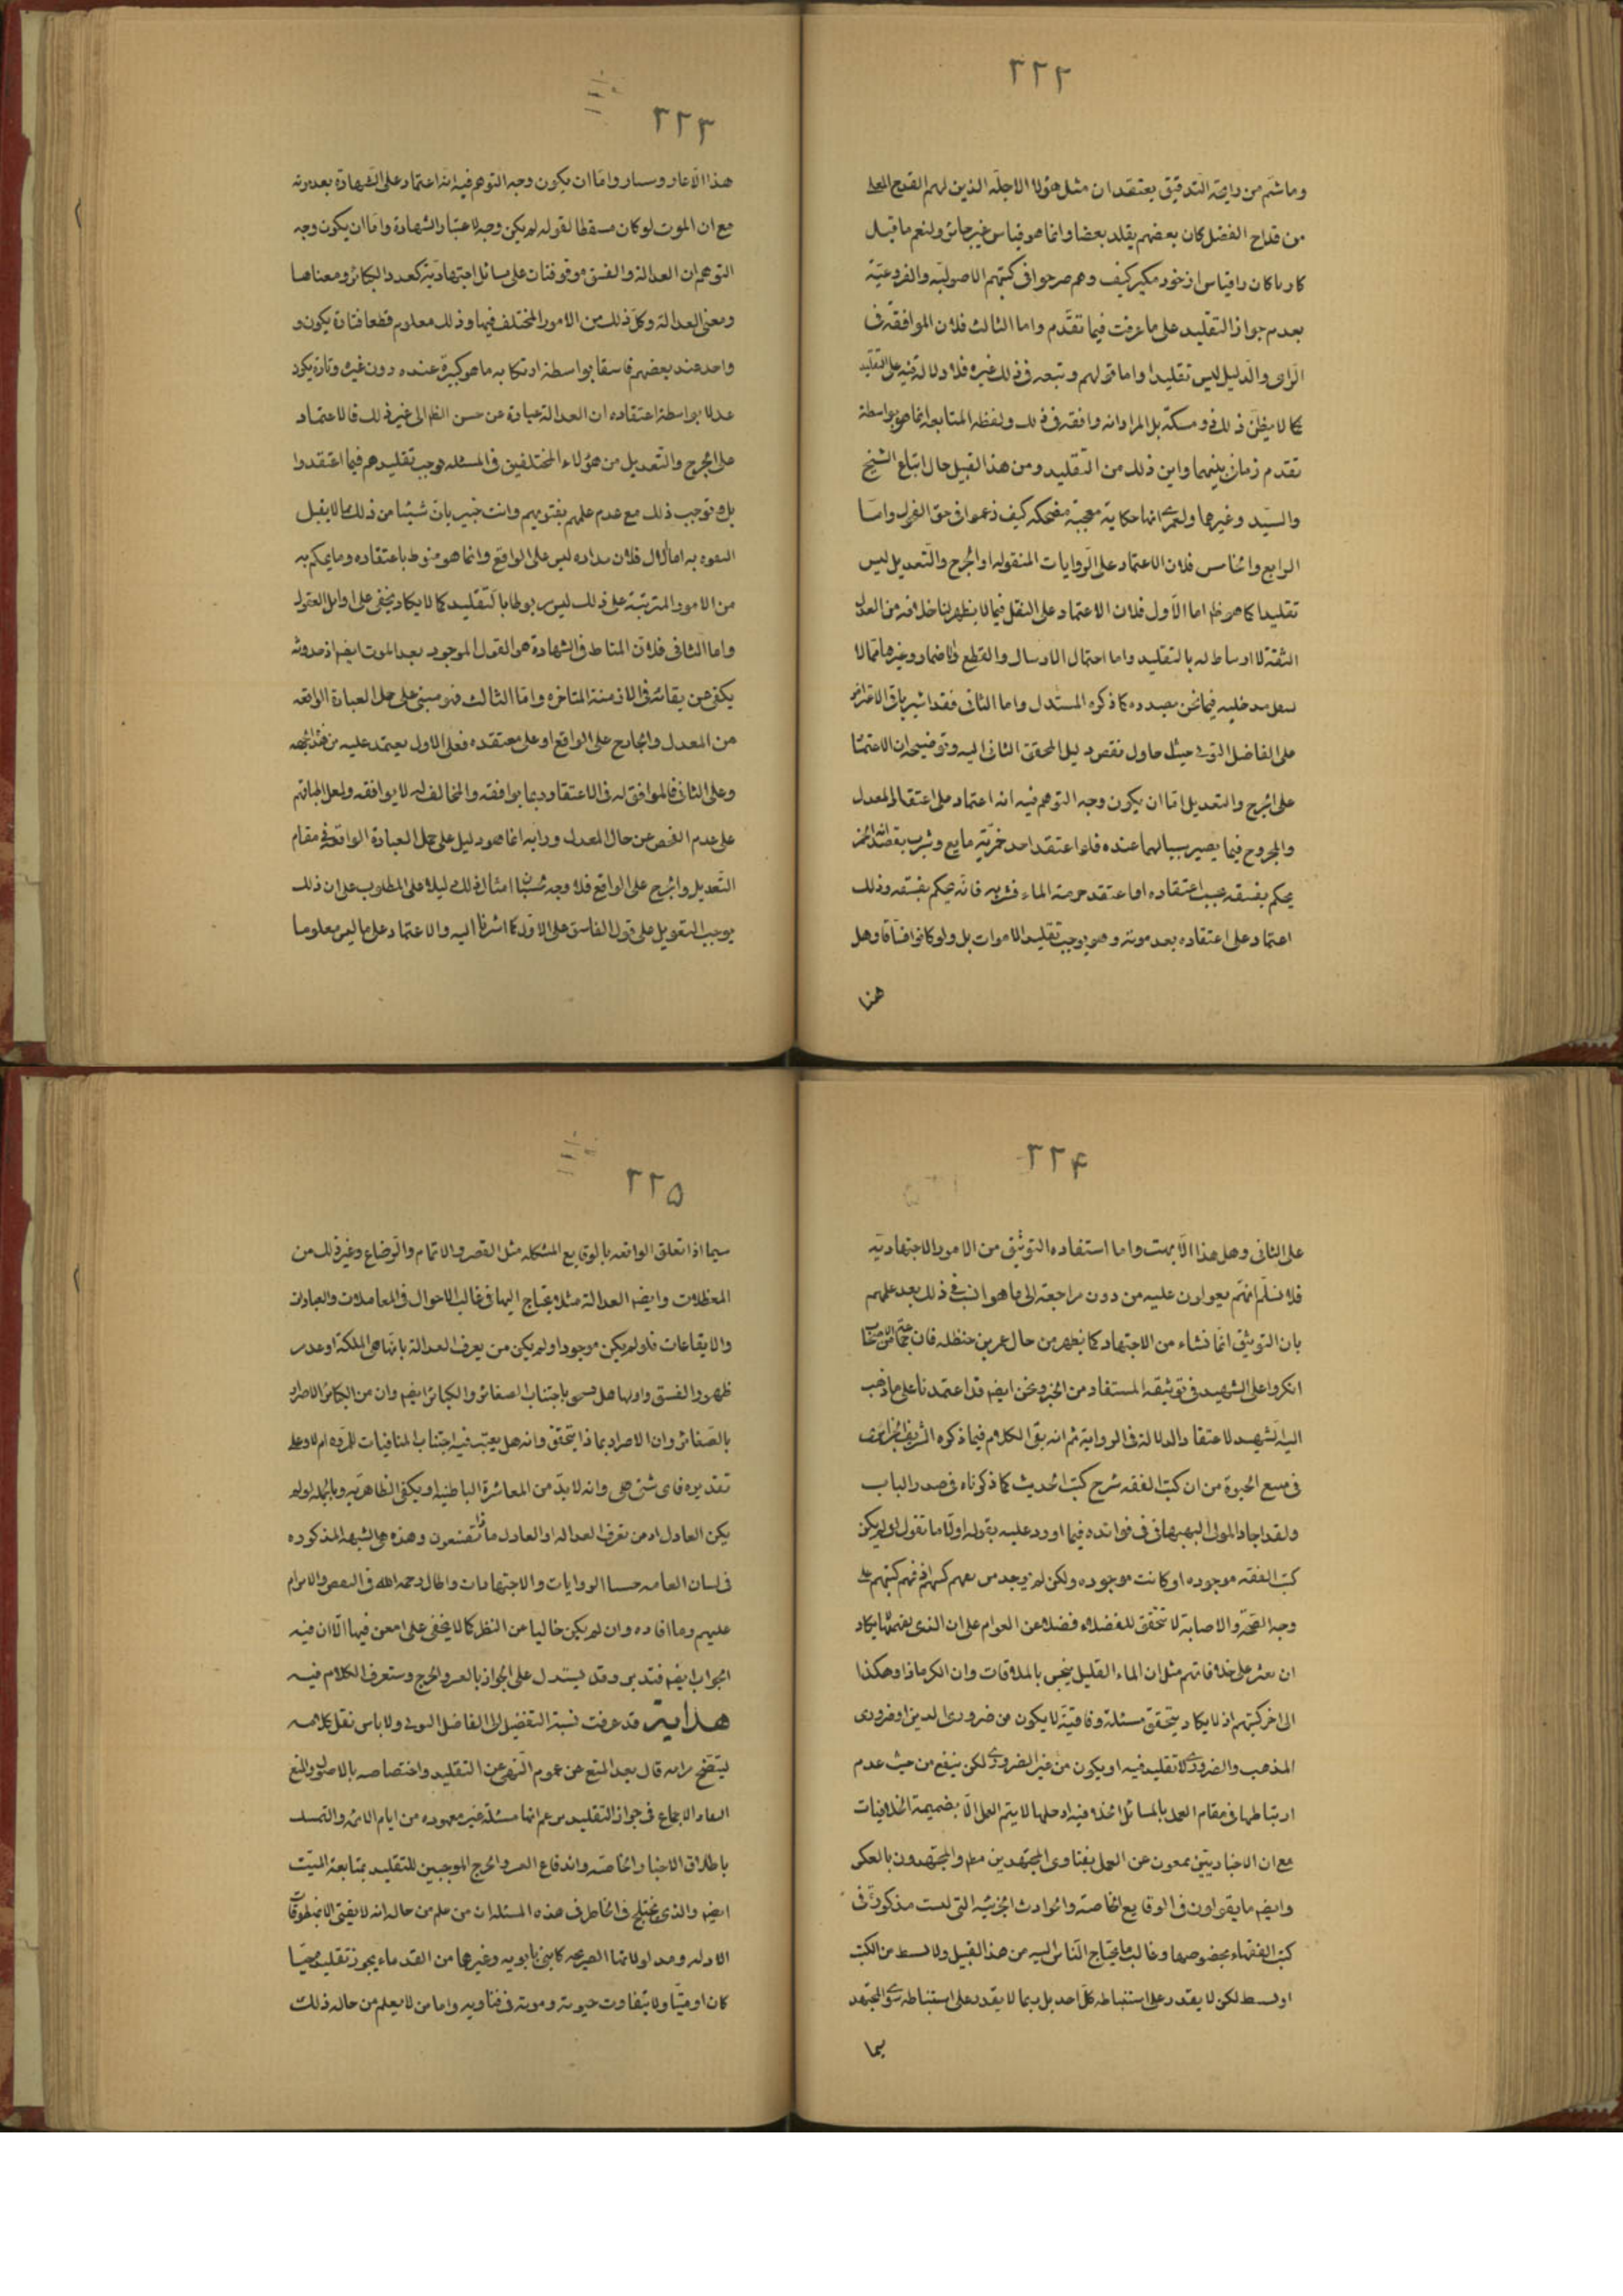 ٣٢٢
وما شمّ من رايحة التدقيق يعتقد ان مثل هؤلاء الاجلّه الذين لهم القدح المعلى
من قداح الفضل كان بعضهم يقلد بعضا وانما هو قياس غير جائز ولنعم ما قيل
كار پاكان را قياس از خود مكير كيف وهم صرحوا فى كتبهم الاصوليّه والفروعيّة
بعدم جواز التقليد على ما عرفت فيما تقدّم واما الثالث فلان الموافقة فى
الراى والدليل ليس تقليدا واما قولهم وتبعه فى ذلك غيره فلا دلالة فيه على التقليد
كما لا يظنّ ذلك ذو مسكة بل المراد انه وافقه فى ذلك ولفظه المتابعه انما هو بواسطة
تقدم زمان بينهما واين ذلك من التقليد ومن هذا القبيل حال اتباع الشيخ
والسيّد وغيرهما ولعمرى انها حكاية معجبة مضحكه كيف زعموا فى حق الفحول واما
الرابع والخامس فلان الاعتماد على الروايات المنقوله او الجرح والتعديل ليس
تقليدا كما هو ظ اما الاول فلان الاعتماد على النقل فيما لا يظهر لنا خلافه من العدل
الثقة لا ارتباط له بالتقليد واما احتمال الارسال والقطع والاضمار وغيرها فما لا
مدخليه فيما نحن بصدده كما ذكره المستدل واما الثانى فقد اشير بانّ الاعتراض
على الفاضل التونى حيث حاول نقض دليل المحقق الثانى اليه وتوضيحه ان الاعتماد
على الجرح والتعديل اما ان يكون وجه التوهم فيه انه اعتماد على اعتقاد المعدل
والمجروح فيما يصير سببا لهما عنده فلو اعتقد احد خمريّة مايع وشرب بقصد انه الخمر
يحكم بفسقه بحسب اعتقاده اما عتقد حرمة الماء فشربه فانّه يحكم بفسقه وذلك
اعتماد على اعتقاده بعد موته وهو يوجب تقليد الاموات بل ولو كانوا فسّاقا وهل
هذا
٣٢٣
هذا الّا عار وشنار واما ان يكون وجه التوهم فيه انه اعتماد على الشهادة بعد موته
مع ان الموت لو كان مسقطا لقوله لم يكن وجه لاعتبار الشهادة واما ان يكون وجه
التوهم ان العدالة والفسق موقوفتان على مسائل اجتهاديّة كعدد الكبائر ومعناها
ومعنى العدالة وكل ذلك من الامور المختلف فيها وذلك معلوم قطعا فتارة يكون
واحد عند بعضهم فاسقا بواسطة ارتكابه ما هو كبيرة عنده دون غيره وتارة يكون
عدلا بواسطة اعتقاده ان العدالة عبارة عن حسن الظاهر الى غير ذلك فالاعتماد
على الجرح والتعديل من هؤلاء المختلفين فى المسئله يوجب تقليدهم فيما اعتقدوا
بل ويوجب ذلك مع عدم علمهم بفتويهم وانت خبير بانّ شيئا من ذلك مما لا يقبل
التفوه به اما الاول فلان مداره ليس على الواقع وانما هو منوط باعتقاده وما يحكم به
من الامور المترتبة على ذلك ليس مربوطا بالتقليد كما لا يكاد يخفى على اوايل العقول
واما الثانى فلان المناط فى الشهادة هو القول الموجود بعد الموت ايضا اذ حدوثه
يكفى عن بقائه فى الازمنة المتاخره واما الثالث فهو مبنى على حمل العبارة الواقعه
من المعدل والجارح على الواقع او على معتقده فعلى الاول يعتمد عليه من هذه الجهه
وعلى الثانى فالموافق له فى الاعتقاد ربما يوافقه والمخالف له لا يوافقه ولعل اطباقهم
على عدم الفحص عن حال المعدل ورايه انما هو دليل على حمل العبارة الواقعة فى مقام
التعديل والجرح على الواقع فلا وجه امثال ذلك دليلا على المطلوب على ان ذلك
يوجب التعويل على قول الفاسق على الاول كما اشرنا اليه والاعتماد على ما ليس معلوما
٣٢٤
على الثانى وهل هذا الّا بهت واما استفاده التوثيق من الامور الاجتهاديّه
فلا نسلّم انهم يعولون عليه من دون مراجعة الى ما هو السبب فى ذلك بعد علمهم
بان التوثيق انما نشاء من الاجتهاد كما يظهر من حال عمر بن حنظله فان
انكروا على الشهيد فى توثيقه المستفاد من الخبر ونحن ايضا قد اعتمدنا على ما ذهب
اليه الشهيد لاعتقاد الدلالة فى الرواية ثم انه بقى الكلام فيما ذكره الشريف الجزايرى
فى منبع الحيوة من ان كتب الفقه شرح كتب الحديث كما ذكرناه فى صدر الباب
ولقد اجاد المولى البهبهانى فى فوائده فيما اورد عليه بقوله اولا ما تقول لو لم يكن
كتب الفقه موجوده او كانت موجوده ولكن لم يوجد من يفهم كتبهم اذ فهم كتبهم على
وجه الصحّة والاصابة لا تتحقق للفضلاء فضلا عن العوام على ان الذى يفهمها يكاد
ان يعثر على خلافاتهم مثل ان الماء القليل ينجس بالملاقات وان الكر ماذا وهكذا
الى اخر كتبهم اذ لا يكاد يتحقق مسئلة وفاقيّة لا يكون من ضرورى الدين او ضرورى
المذهب والضرورى لا تقليد فيه او يكون من غير الضرورى لكن ينفع من حيث عدم
ارتباطها فى مقام العمل بالمسائل الخلافيه او حلها لا يتم العمل الا بضميمة الخلافيات
مع ان الاخباريين يمنعون عن العمل بفتاوى المجتهدين مطلقا والمجتهدون بالعكس
وايضا ما يقولون فى الوقايع الخاصة والحوادث الجزئيه التى ليست مذكورة فى
كتب الفقهاء بخصوصها وغالب ما يحتاج الناس اليه من هذا القبيل ولا يستنبط من الكتب
او يستنبط لكن لا يقدر على استنباطه كلّ احد بل ربما لا يقدر على استنباطه سوى المجتهد
سيما
٣٢٥
سيما اذا تعلق الواقعه بالوقايع المشكله مثل القصر والاتمام والرضاع وغير ذلك من
المعظلات وايضا العدالة مثلا يحتاج اليها فى غالب الاحوال فى المعاملات والعبادات
والايقاعات فلو لم يكن موجودا ولم يكن من يعرف العدالة بانها هى الملكة او عدم
ظهور الفسق وانها هل هى باجتناب الصغائر والكبائر ايضا وان من الكبائر الاصرار
بالصغائر وان الاصرار بماذا يتحقق وانه هل يعتبر فيه اجتناب المنافيات للمروه ام لا وعلى
تقديره فاى شئ هى وانه لا بدّ من المعاشرة الباطنيه او يكفى الظاهريّه وبالجمله لو لم
يكن العادل او من يعرف العدالة او العادل ماذا تصنعون وهذه هى الشبهه المذكوره
فى لسان العامه حسبنا الروايات والاجتهادات واطال رحمه الله فى النقض والابرام
عليهم وما افاده وان لم يكن خاليا عن النظر كما لا يخفى على من امعن فيها الّا ان فيه
الجواب ايضا فتدبر وقد يستدل على الجواز بالعسر والحرج وستعرف الكلام فيه
هداية قد عرفت نسبة التفضيل الى الفاضل التونى ولا باس بنقل كلامه
ليتضح مرامه قال بعد المنع عن عموم النهى عن التقليد واختصاصه بالاصول والمنع
انعقاد الاجماع فى جواز التقليد انها مسئلة غير معهوده من ايام الائمه والتمسك
باطلاق الاخبار الخاصه واندفاع العسر والحرج الموجبين للتقليد بمتابعة الميّت
ايضا والذى يختلج فى الخاطر فى هذه المسئله ان من علم من حاله انه لا يفتى الا بمنطوقات
الادله ومدلولاتها الصريحه كابنى بابويه وغيرهما من القدماء يجوز تقليده حيّا
كان او ميّتا ولا يتفاوت حيوته وموته فى فتاويه واما من لا يعلم من حاله ذلك